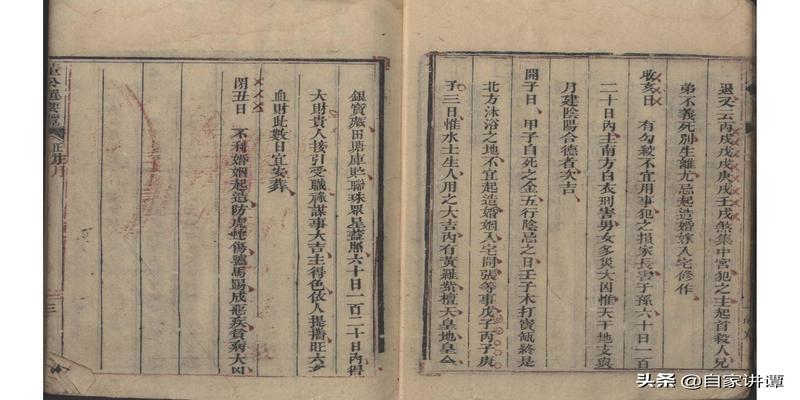 退又云丙戌戊戌庚戌壬戌煞集中宮犯之主起首殺人兄
弟不義死別生離尤忌起造婚嫁入宅修作
收亥日 有勾絞不宜用事犯之損家長害子孫六十日一百
二十日內主南方白衣刑害男女多災大凶惟天干地支與
月建陰陽合德者次吉
開子日 甲子自死之金五行陰忌之日壬子木打寶瓶終是
北方沐浴之地不宜起造婚姻入宅開張等事戊子丙子庚
子三日惟水土生人用之大吉內有黃羅紫檀天皇地皇金
銀寶藏田塘庫貯聯珠眾星蓋照六十日一百二十日內得
大財貴人接引受職祿謀事大吉主得色依人提攜旺六畜
血財此數日宜安葬
閉丑日 不利婚姻起造防虎蛇傷馬賜成惡疾貧病大凶
董公選要覽 正月 三
头条 @自家讲谭